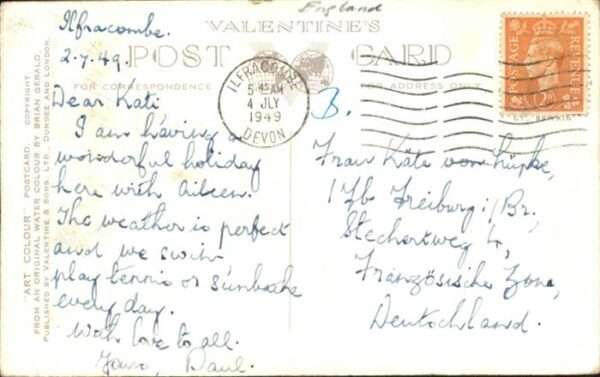 England
VALENTINE'S
POST CARD
FOR CORRESPONDENCE
FOR ADDRESS ONLY
"ART COLOUR" POSTCARD. COPYRIGHT.
FROM AN ORIGINAL WATER COLOUR BY BRIAN GERALD.
PUBLISHED BY VALENTINE & SONS, LTD., DUNDEE AND LONDON.
Ilfracombe.
2.7.49.
Dear Käti
I am having a
wonderful holiday
here with Aileen.
The weather is perfect
and we swim
play tennis or sunbathe
every day.
With love to all.
Yours, Paul.
ILFRACOMBE
5 45 AM
4 JLY
1949
DEVON
POSTAGE
REVENUE
B.
Frau Käte von Lüpke,
17b Freiburg i/Br.,
Stechertweg 4,
Französische Zone,
Deutschland.